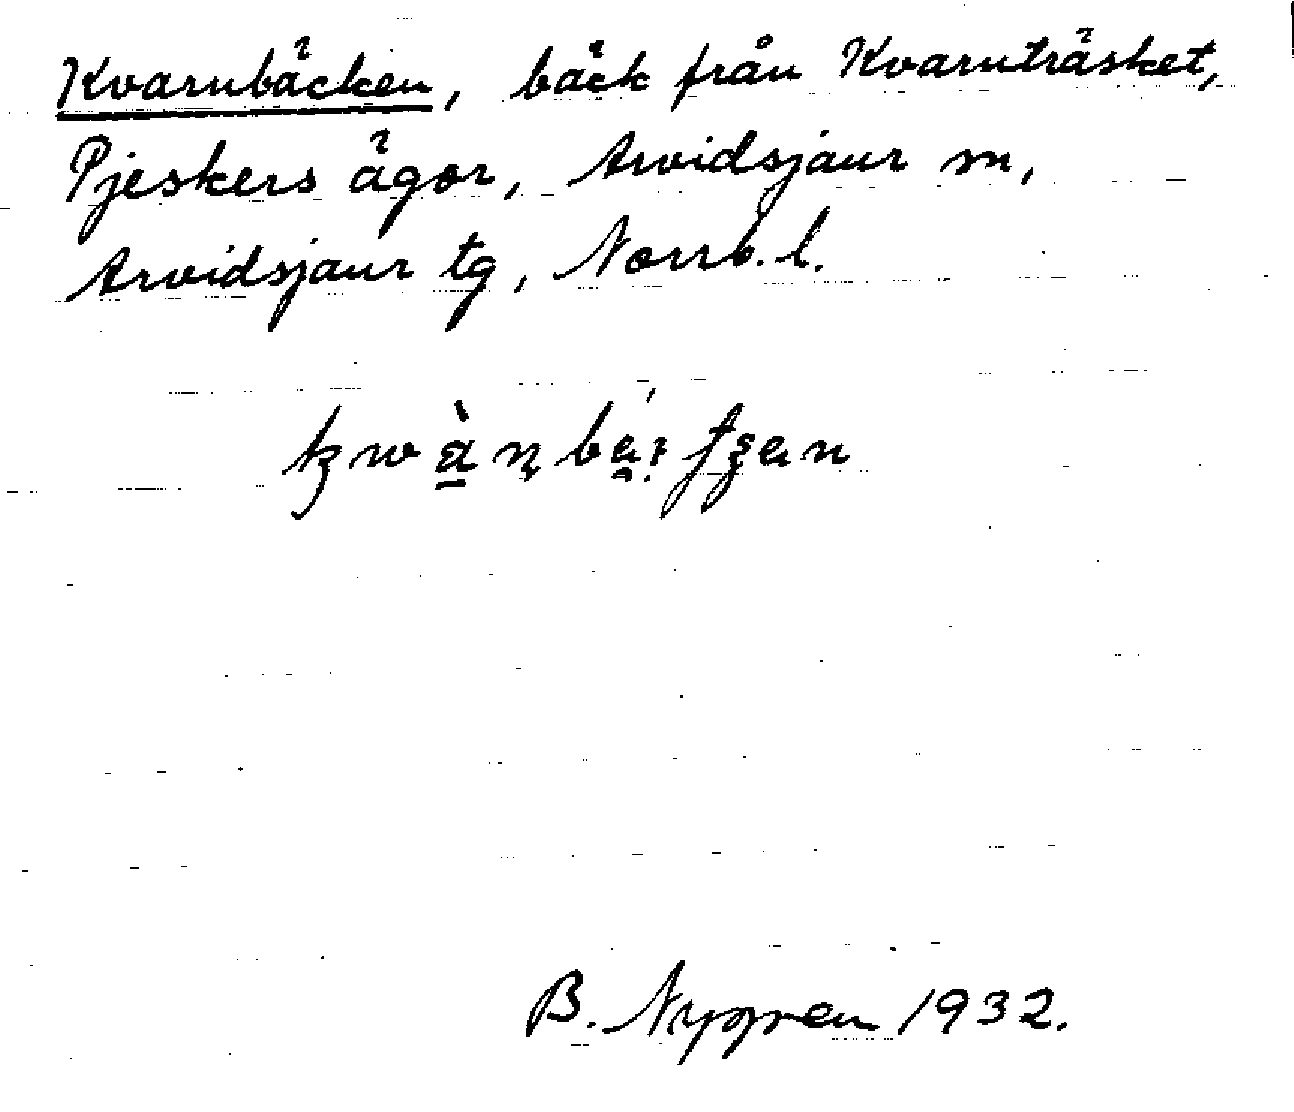 Kvarnbäcken, bäck från Kvarnträsket,
Pjeskers ägor, Arvidsjaur sn,
Arvidsjaur tg, Norrb. l.
B. Nygren 1932.